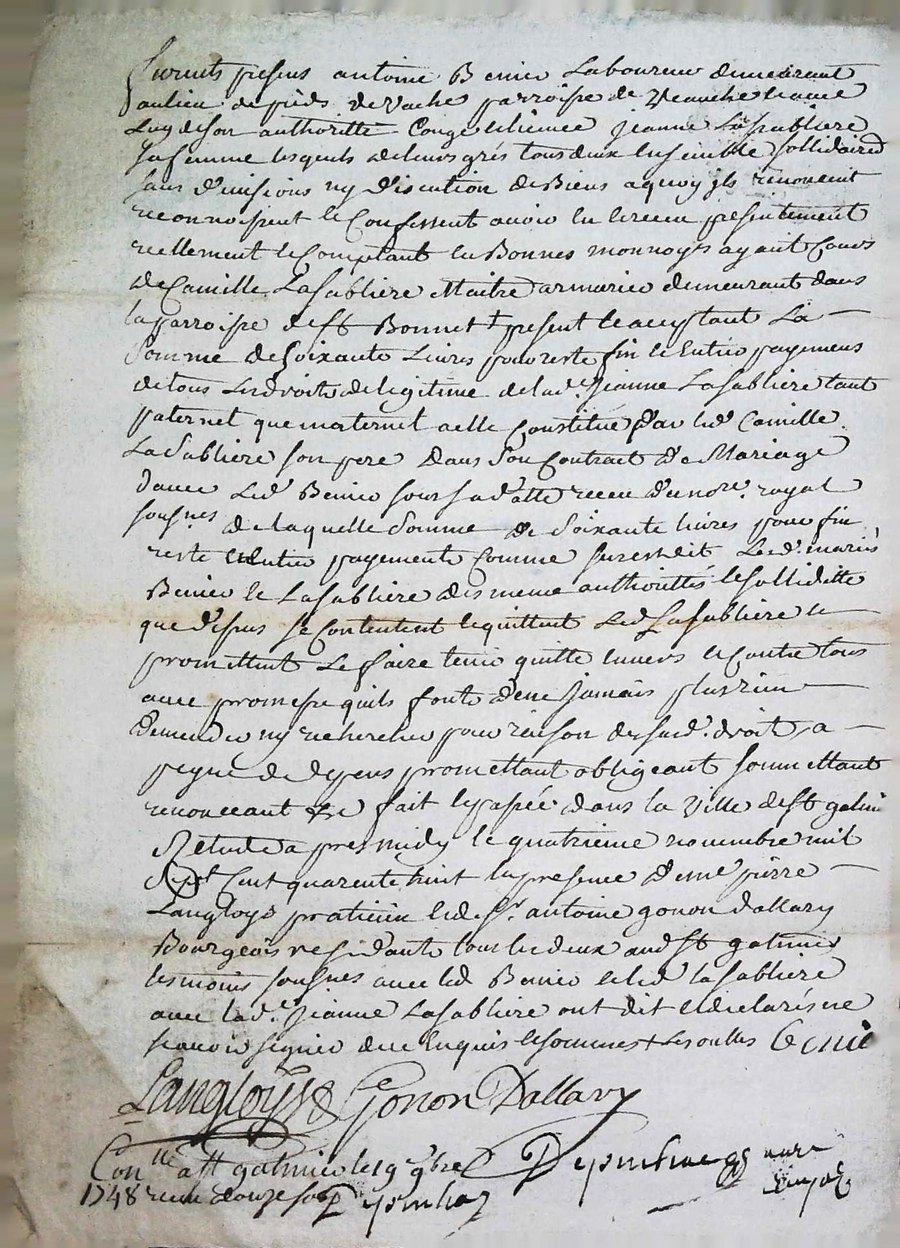 furents presens antoine Benier Laboureur demeurant
aulieu de pieds de vache parroisse de Veauche avec
Luy de son authoritté Congé et licence jeanne La sabliere
sa femme lesquels de leurs grés tous deux Ensemble sollidaires
sans divisions ny discution de Biens a quoy ils renoncent
reconnoissent et Confessent avoir Eu et receu presentement
reellement et Comptant En Bonnes monnoyes ayant Cours
de Camille LaSabliere Maitre armurier demeurant dans
la parroisse de st Bonnet + present et acceptant La
Somme de Soixante Livres pour reste fin et Entier payement
de tous Les droits de legitime de lad.e Jeanne LaSabliere tant
paternel que maternel a elle Constitué Par led Camille
LaSabliere son pere dans Son Contract de Mariage
d'avec Led Benier sous sa datte receu du nore. royal
sousnes de laquelle Somme de Soixante livres pour fin
reste et Entier payement Comme sus est dit Lesd. mariés
Benier et LaSabliere des meme authorittés et solliditté
que dessus se Contentent et quittent Led LaSabliere et
promettent Le faire tenir quitte Envers et Contre tous
avec promesse quils font d'en jamais plus rien
demander ny rechercher pour raison desusd. droits, a
peyne de depens promettant obligeant soumettant
renonceant &c fait et passé dans la Ville de st galmier
Etude apres midy le quatrieme novembre mil
Sept Cent quarente huit En presence de me pierre
Langloys praticien et de sr. antoine gonon dallary
Bourgeois residants tous les deux aud st galmier
tesmoins sousnes avec led Benier et led lasabliere
avec lad.e Jeanne LaSabliere ont dit et declarés ne
scavoir signer de ce Enquis et sommes + Les oulles Benié
Langloys Gonon Dallary
Con.lle a st galmier le 19 9bre
1748 receu douze sols